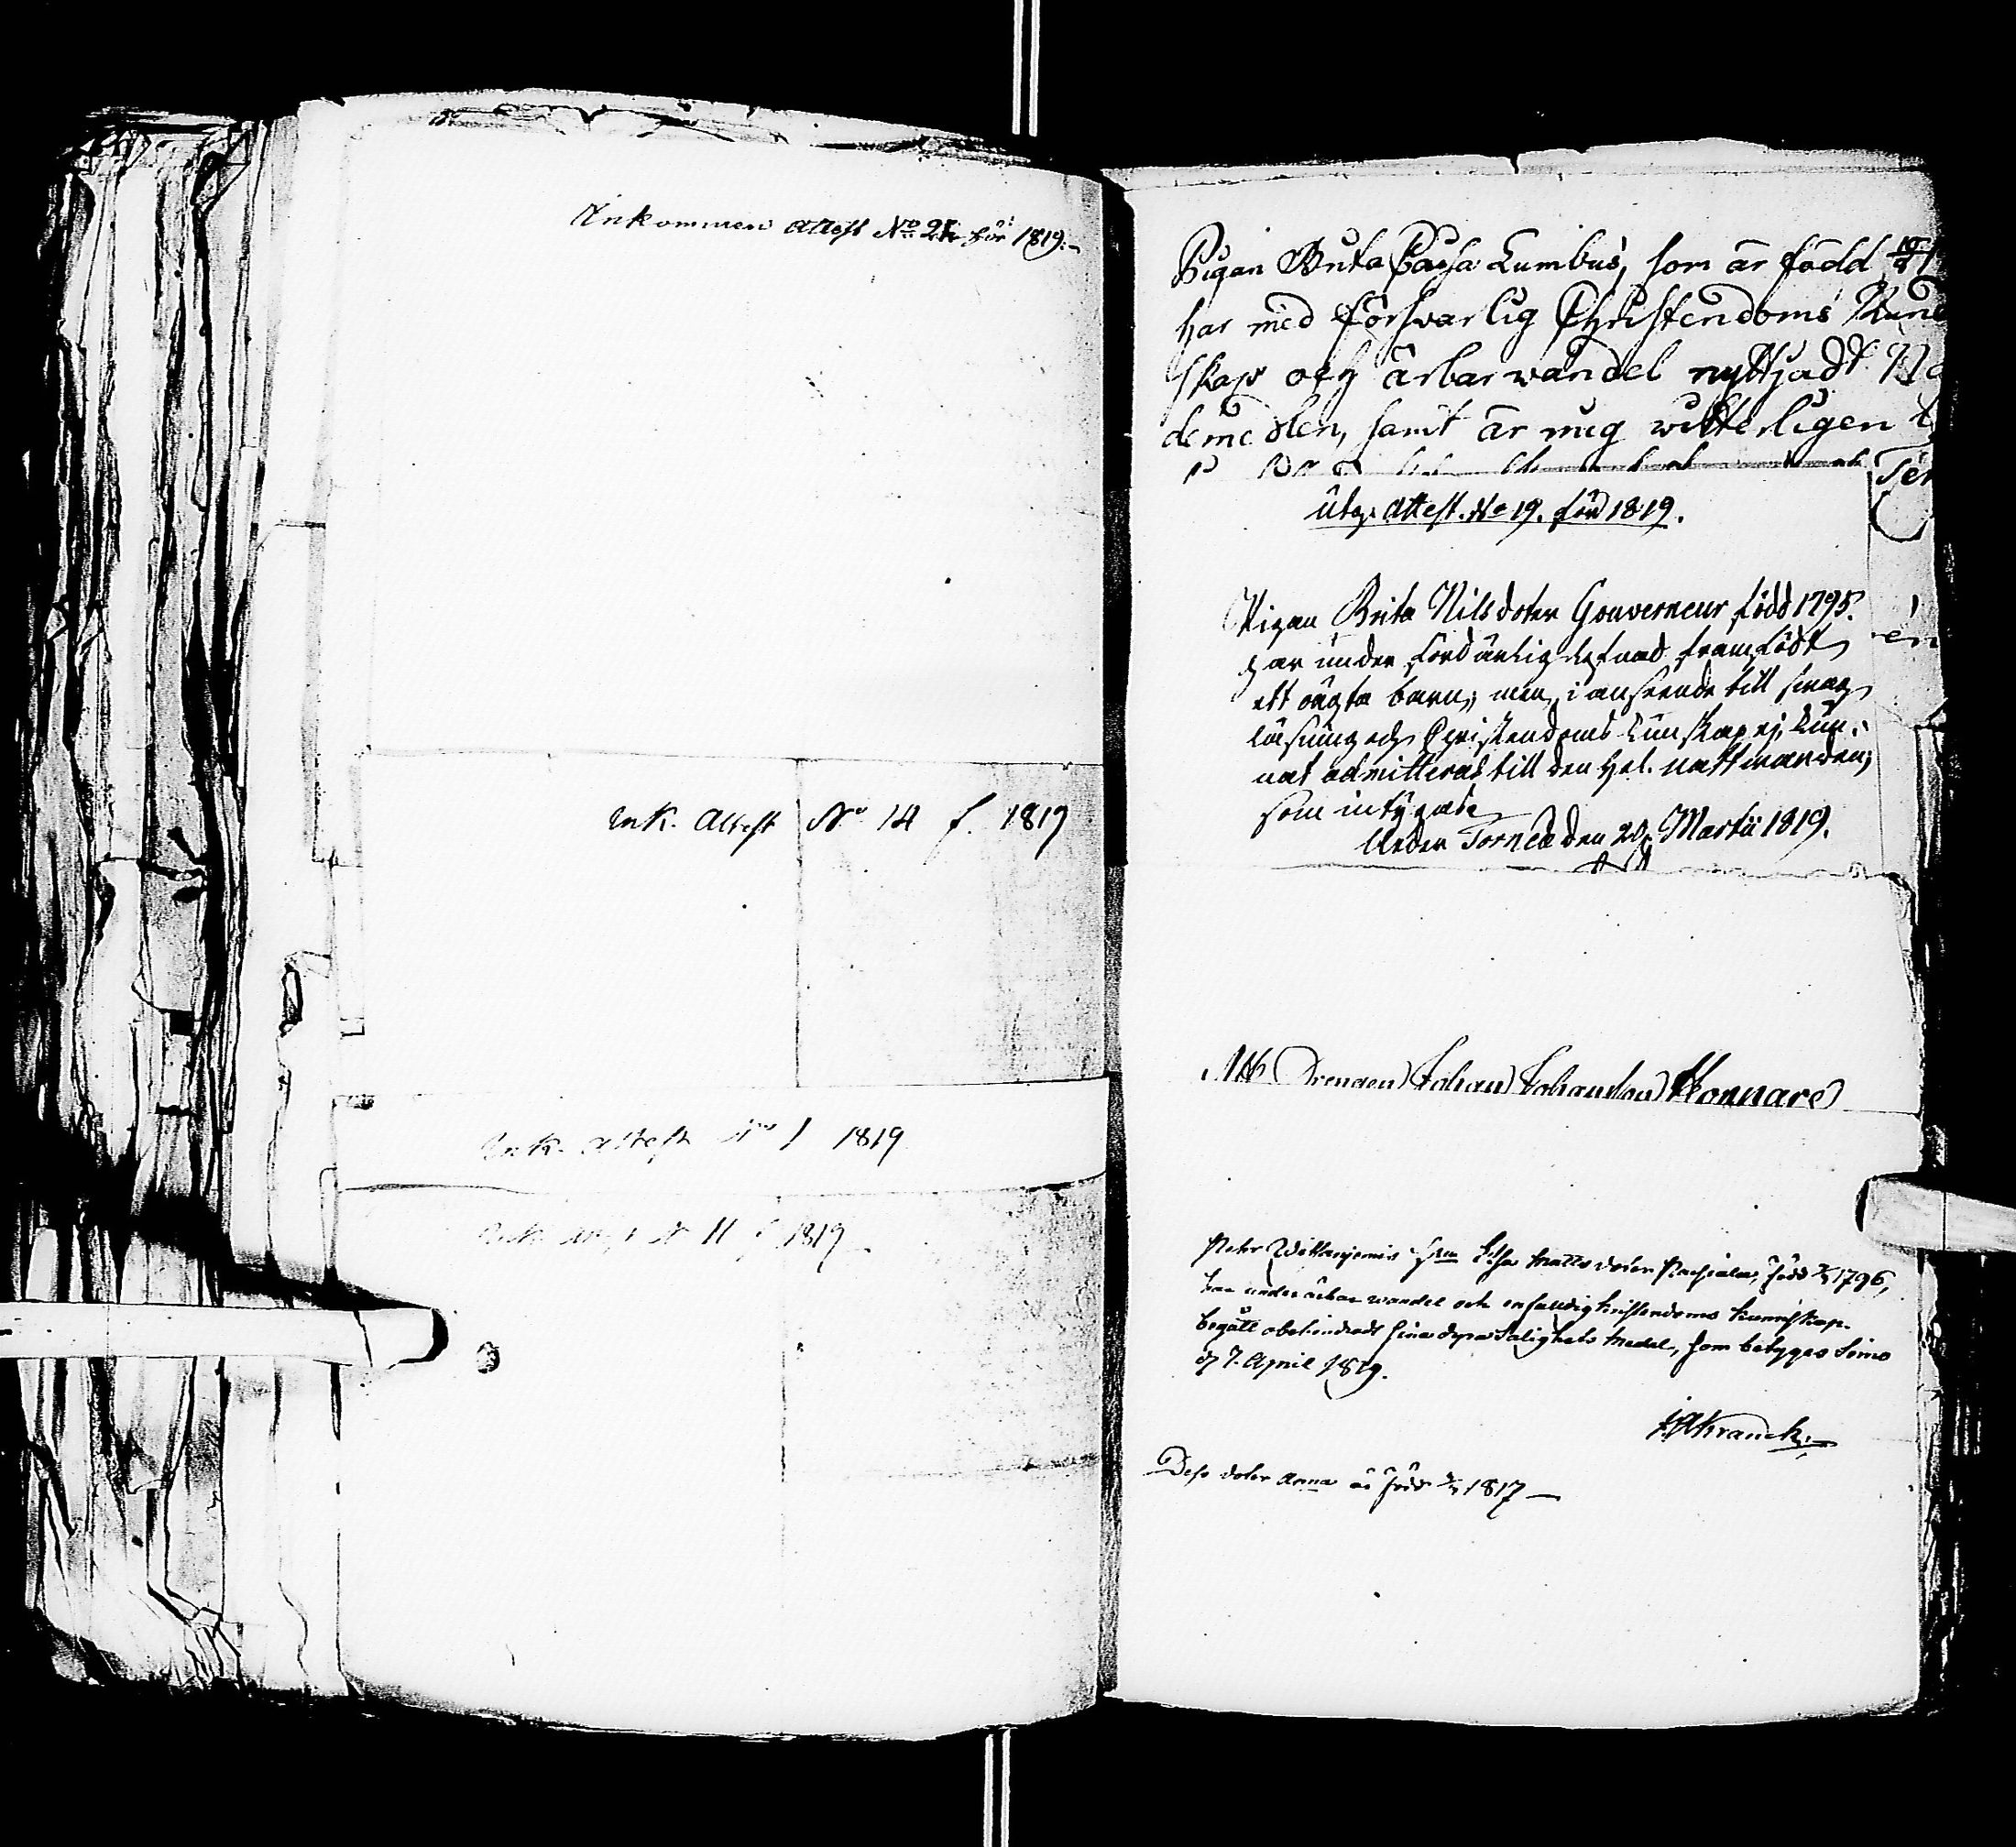 Inkommen attest No 21 för 1819.
Ink. Attest No 14 f. 1819
Ink. attest No 1 1819
Ink. No 11 f. 1819
Pigan Brita Caisa Lumbus, som är född 19
har med förswarlig Christendoms Kund
skap och ärbar wandel nyttjadt Nå
demedlen, samt är mig witterligen
utg. Attest. No 19. för 1819.
Pigan Brita Nilsdoter Gouverneur född 1795.
har under lefnad framfödt
ett oägta barn; men, i anseende till swag
läsning och Christendoms kunskap ej kun-
nat admitteras till den Hel. nattwarden;
som intygade
Neder Torneå den 20 Martii 1819.
Att Drengen Johan Johansson Konnare
Petr Wittaniemis hru Elsa Matts doter född 1796,
har under ärbar wandel och enfaldig kristendoms kunnskap
begått obehindradt sina dyra Salighets medel, som betygas Simo
d 7. April 1819.
Kranck
Dess doter Anna är född 1817